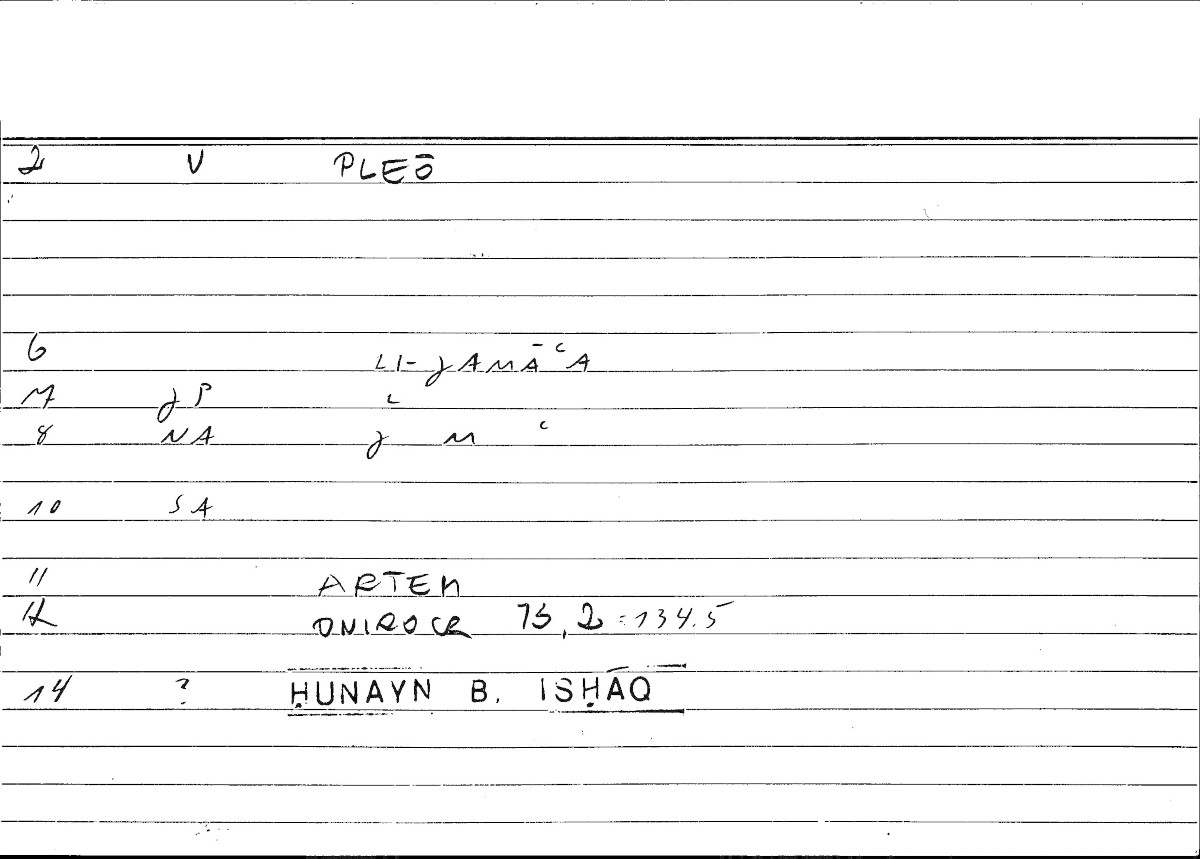 2 V PLEŌ
6 LI-JAMĀʿA
7 JP ʿ
8 NA J M ʿ
10 SA
11 ARTEM
12 ONIROCR 15,2 = 134.5
14 ? ḤUNAYN B. ISḤĀQ